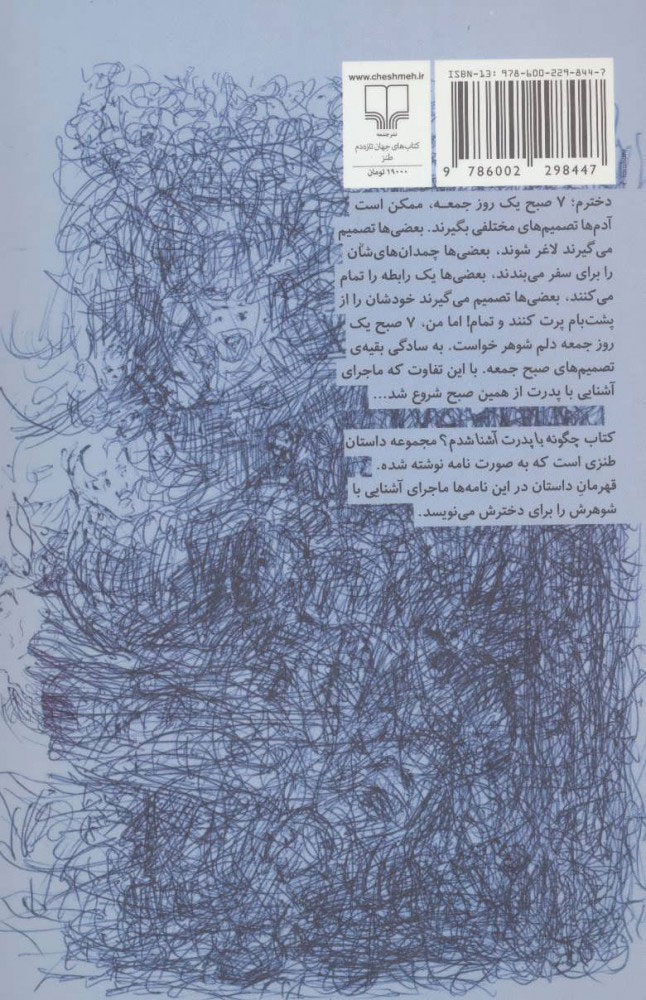 www.cheshmeh.ir
نشرچشمه
کتاب‌های جهان تازه‌دم
طنز
۱۹۰۰۰ تومان
ISBN-13: 978-600-229-844-7
9 786002 298447
دخترم؛ ۷ صبح یک روز جمعـه، ممکن است
آدم‌ها تصمیم‌های مختلفی بگیرند. بعضی‌ها تصمیم
می‌گیرند لاغر شوند، بعضی‌ها چمدان‌های‌شان
را برای سفر می‌بندند، بعضی‌ها یک رابطه را تمام
می‌کنند، بعضی‌ها تصمیم می‌گیرند خودشان را از
پشت‌بام پرت کنند و تمام! اما من، ۷ صبح یک
روز جمعه دلم شوهر خواست. به سادگی بقیه‌ی
تصمیم‌های صبح جمعه. با این تفاوت که ماجرای
آشنایی با پدرت از همین صبح شروع شد...
کتاب چگونه با پدرت آشنا شدم؟ مجموعه داستان
طنزی است که به صورت نامه نوشته شده.
قهرمانِ داستان در این نامه‌ها ماجرای آشنایی با
شوهرش را برای دخترش می‌نویسد.